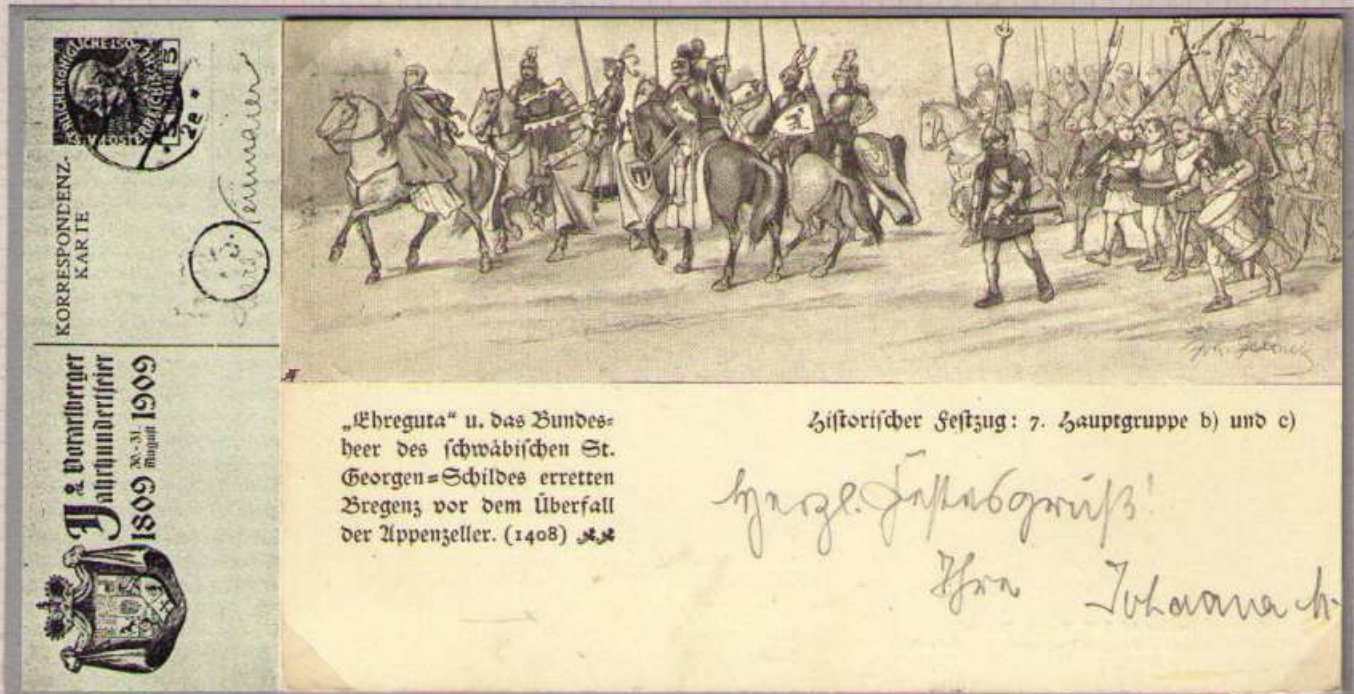 KORRESPONDENZ-
KARTE
Vorarlberger
Jahrhundertfeier
1809 30.-31. August 1909
„Ehreguta“ u. das Bundes-
heer des schwäbischen St.
Georgen-Schildes erretten
Bregenz vor dem Überfall
der Appenzeller. (1408)
Historischer Festzug: 7. Hauptgruppe b) und c)
Herzl. Festesgruß!
Ihre Johanna